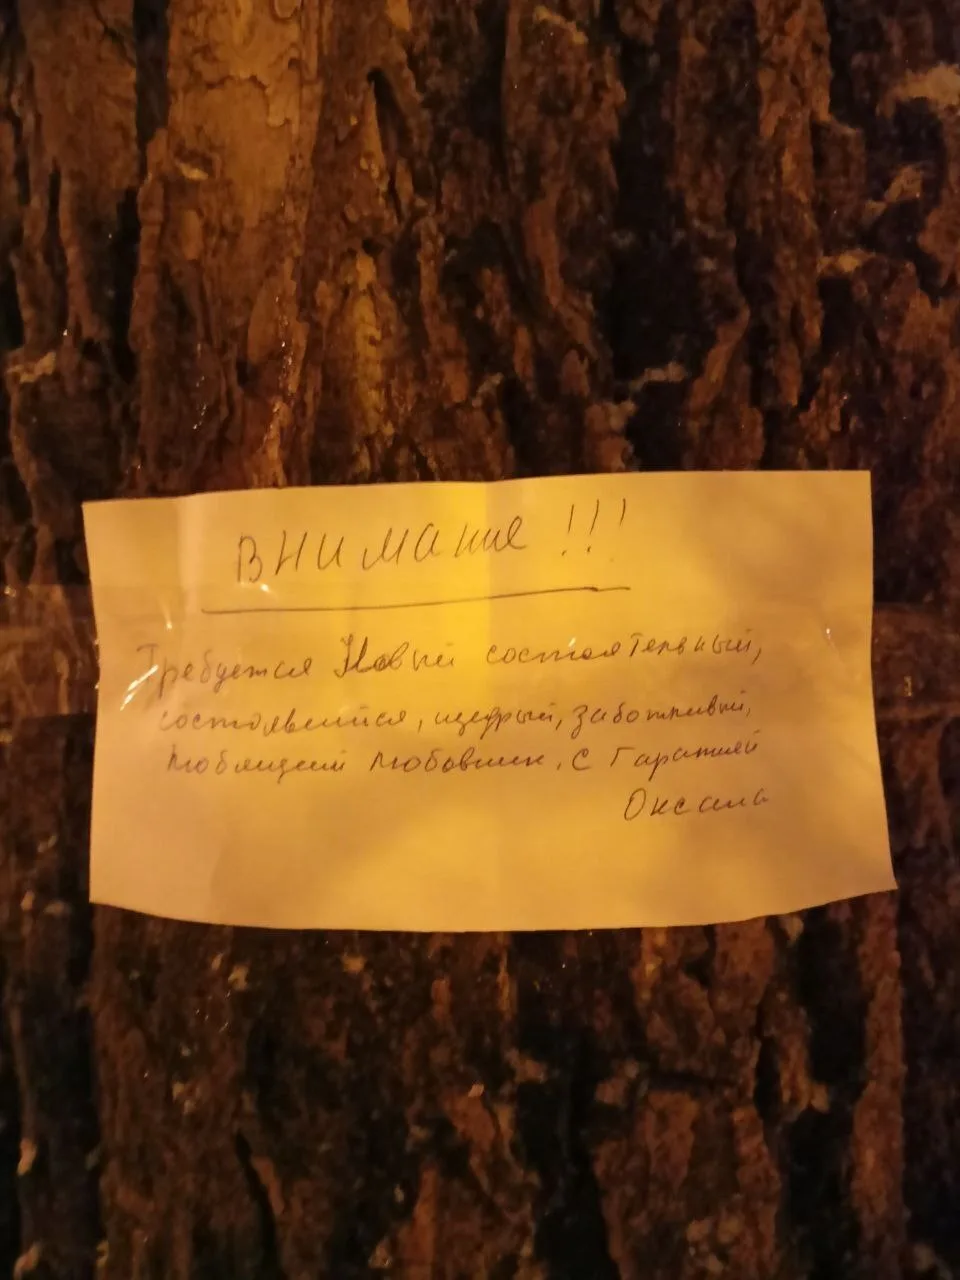 Внимание!!!
Требуется Новый состоятельный,
состоявшийся, щедрый, заботливый,
любящий любовник. С Гарантией
Оксана